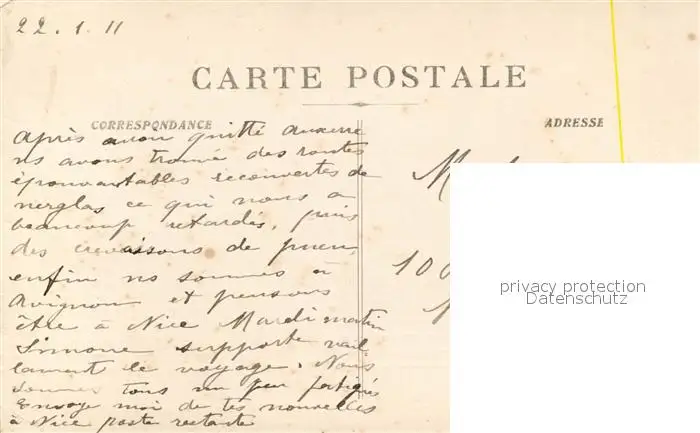 22.1.11
CARTE POSTALE
CORRESPONDANCE
ADRESSE
après avoir quitté Auxerre
ns avons trouvé des routes
épouvantables recouvertes de
verglas ce qui nous a
beaucoup retardés, puis
des crevaisons de pneu,
enfin ns sommes à
Avignon et pensons
être à Nice Mardi matin
Simone supporte vail
lament le voyage. Nous
sommes tous un peu fatigués
Envoye moi de tes nouvelles
à Nice poste restante
M
100
privacy protection
Datenschutz